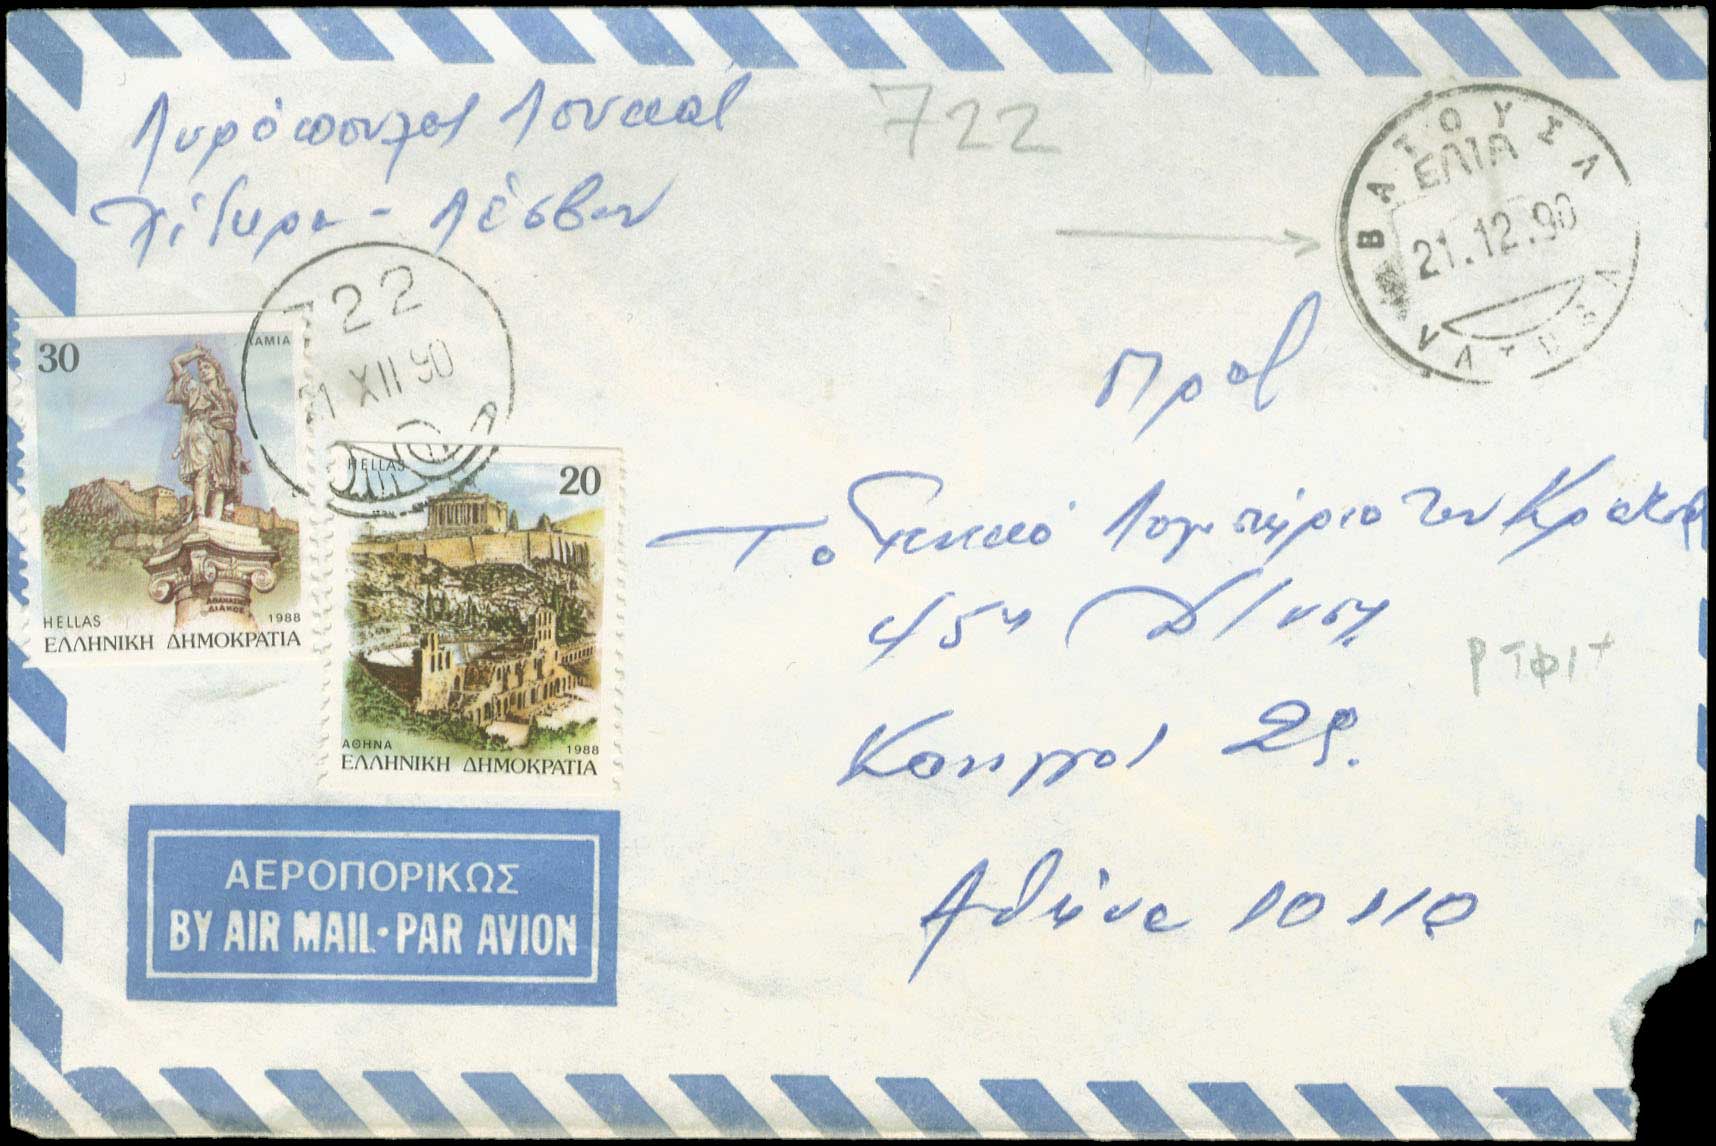 Λυρόπουλος Λουκάς
Χίδηρα - Λέσβου
722
ΒΑΤΟΥΣΑ
ΕΛΤΑ
21.12.90
722
XII 90
30
ΛΑΜΙΑ
ΑΘΑΝΑΣΙΟΣ
ΔΙΑΚΟΣ
HELLAS 1988
ΕΛΛΗΝΙΚΗ ΔΗΜΟΚΡΑΤΙΑ
HELLAS
20
ΑΘΗΝΑ 1988
ΕΛΛΗΝΙΚΗ ΔΗΜΟΚΡΑΤΙΑ
ΑΕΡΟΠΟΡΙΚΩΣ
BY AIR MAIL·PAR AVION
Προς
Το Γενικό Λογιστήριο του Κράτους
45η Δ/νση
Κάνιγγος 29.
Αθήνα 10110